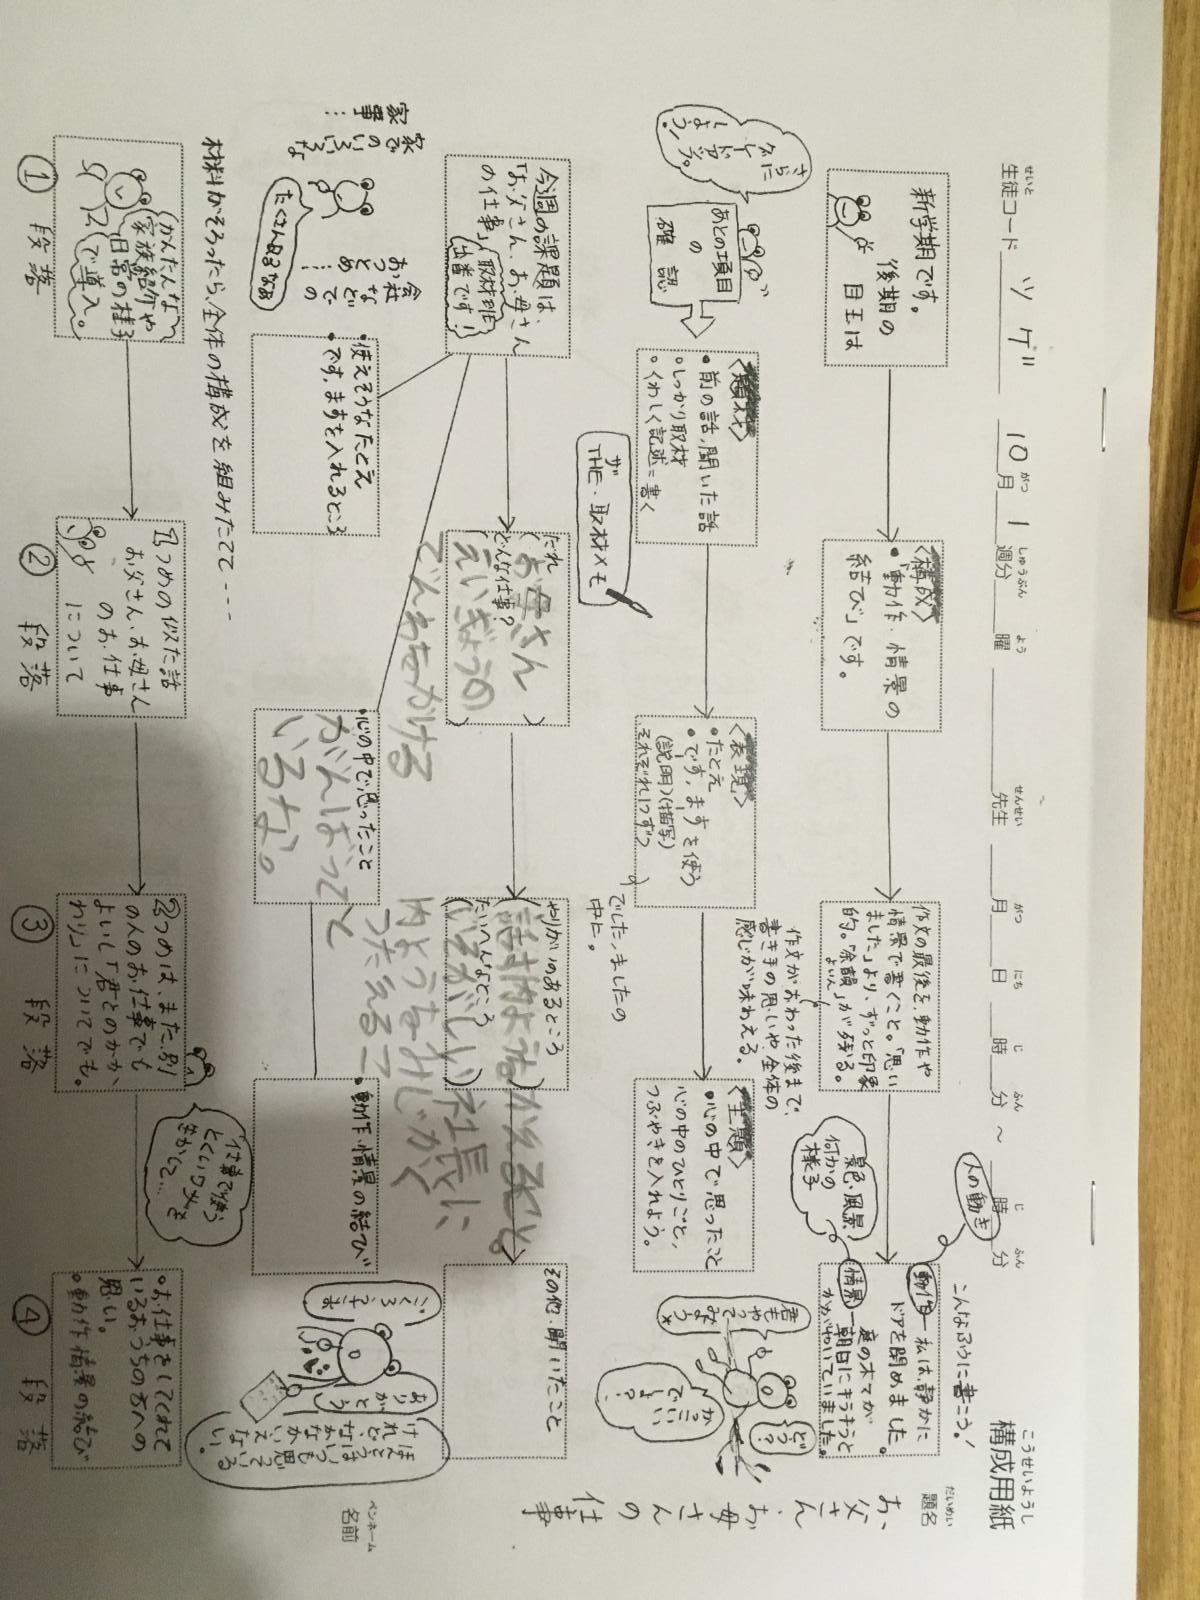 構成用紙
こうせいようし
生徒コード ツゲ 10月1週分 曜 先生 月 日 時 分 〜 時 分
せいと がつ しゅうぶん よう せんせい がつ にち じ ふん じ ふん
題名
だいめい
お父さん、お母さんの仕事
名前
ペンネーム
新学期です。
後期の
目玉は
〈構成〉
・「動作・情景の
結び」です。
作文の最後を、動作や
情景で書くこと。「思い
ました」より、ずっと印象
的。「余韻」が残る。
よいん
作文がおわった後まで、
書き手の思いや全体の
感じが味わえる。
こんなふうに書こう!
人の動き
動作―私は、静かに
ドアを閉めました。
庭の木々が
情景―朝日にキラキラと
かがやいていました。
景色・風景、
何かの
様子
さらに
グレー
ドアップ
しよう!
あとの項目
の
確認
〈題材〉
・前の話、聞いた話
○しっかり取材
○くわしく記述=書く
ザ
THE・取材メモ
〈表現〉
・たとえ
・です。ますを使う
(説明)(描写)
それぞれ1つずつ
でした、ましたの
中に。
〈主題〉
・心の中で思ったこと
心の中のひとりごと、
つぶやきを入れよう。
君も
やって
みよう
かっこいい
でしょ?
どう?
今週の課題は、
「お父さん、お母さん
の仕事」
取材班
出番です!
会社
などでの
おつとめ…
家での
いろいろな
家事…
たくさんあるなあ
だれ
(お母さん)
どんな仕事?
(えいぎょうの
でんわをかける
やりがいのあるところ
たいへんなところ
(いそがしい)
社長に
内ようをみじかく
つたえること
その他・聞いたこと
・使えそうなたとえ
・です。ますを入れるところ
・心の中で思ったこと
がんばって
いるな。
・動作・情景の結び
ごくろうさま
ありがとう
ほんとうは
いつも思っている
けれど、なかなかいえない。
材料がそろったら、全体の構成を組みたてて----
かんたんな
家族紹介や
日常の様子
で導入。
① 段落
1つめの似た話
お父さん、お母さん
のお仕事
について
② 段落
2つめは、また別
の人のお仕事でも
よいし「君とのかか
わり」についてでも。
③ 段落
仕事で使う
とくいワザを
生かして…
・お仕事をしてくれて
いるおうちの方への
思い。
・動作・情景の結び
④ 段落